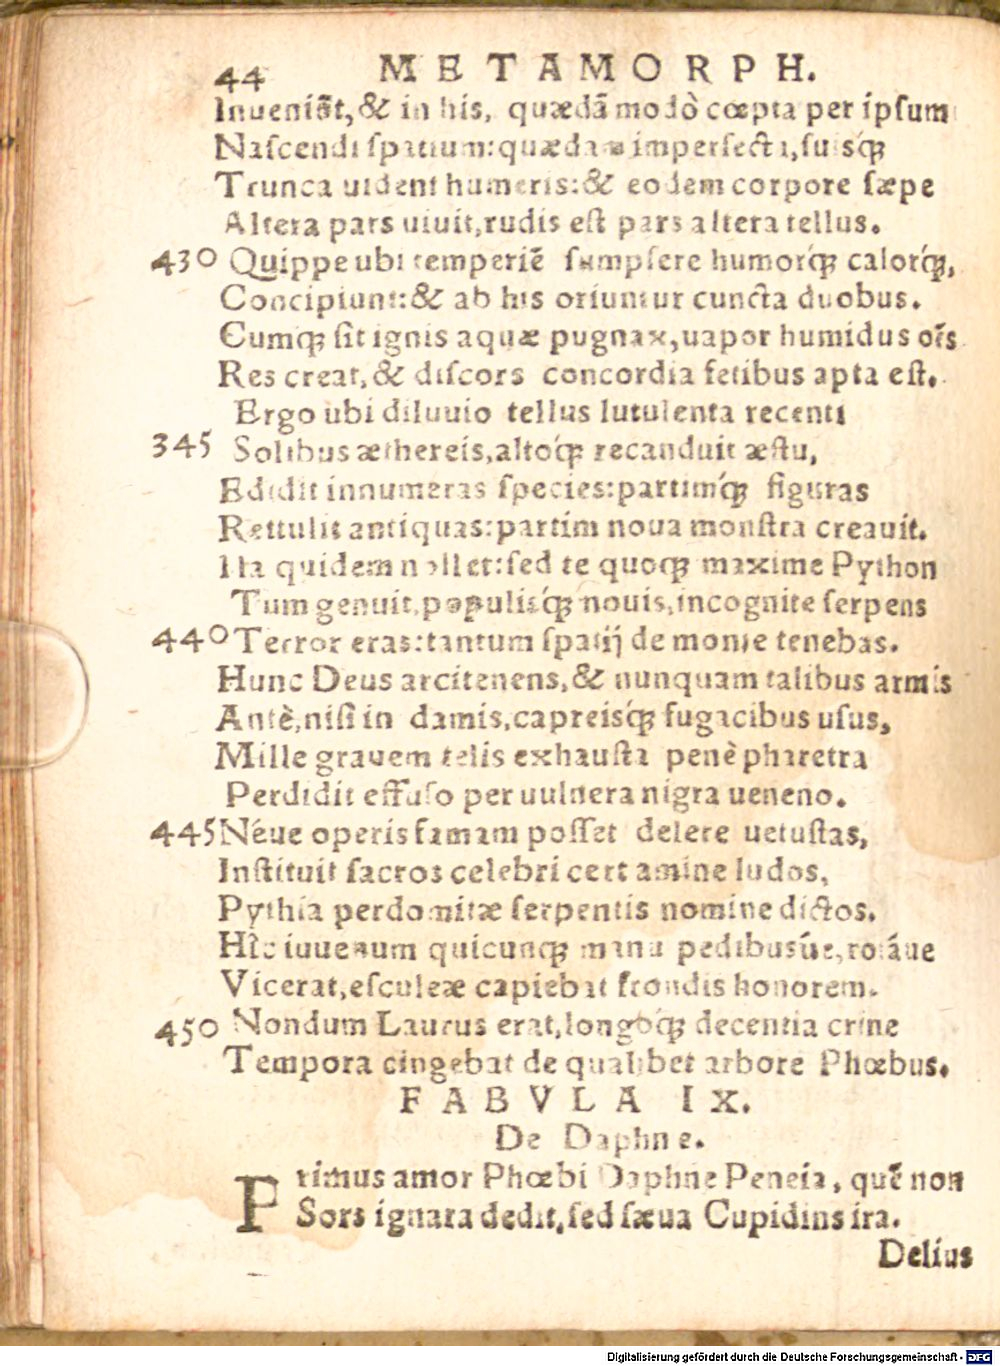 44 METAMORPH.
Inueniũt,& in his, quædã modò cœpta per ipsum
Nascendi spatium:quædam imperfecta,suisq́;
Trunca uident humeris:& eodem corpore sæpe
Altera pars uiuit,rudis est pars altera tellus.
430 Quippe ubi temperiẽ sumpsere humorq́; calorq́;,
Concipiunt:& ab his oriuntur cuncta duobus.
Cumq; sit ignis aquæ pugnax,uapor humidus oẽs
Res creat,& discors concordia fetibus apta est.
Ergo ubi diluuio tellus lutulenta recenti
345 Solibus æthereis,altoq́; recanduit æstu,
Edidit innumeras species:partimq́; figuras
Rettulit antiquas:partim noua monstra creauit.
Illa quidem nollet:sed te quoq; maxime Python
Tum genuit,populisq́; nouis,incognite serpens
440 Terror eras:tantum spatij de monte tenebas.
Hunc Deus arcitenens,& nunquam talibus armis
Antè,nisi in damis,capreisq́; fugacibus usus,
Mille grauem telis exhausta penè pharetra
Perdidit effuso per uulnera nigra ueneno.
445 Néue operis famam posset delere uetustas,
Instituit sacros celebri certamine ludos,
Pythia perdomitæ serpentis nomine dictos.
Hîc iuuenum quicunq; manu pedibusúe,rotáue
Vicerat,esculeæ capiebat frondis honorem.
450 Nondum Laurus erat,longoq́; decentia crine
Tempora cingebat de qualibet arbore Phœbus.
FABVLA IX.
De Daphne.
Primus amor Phœbi Daphne Peneia, quẽ non
Sors ignara dedit,sed sæua Cupidins ira.
Delius
Digitalisierung gefördert durch die Deutsche Forschungsgemeinschaft - DFG